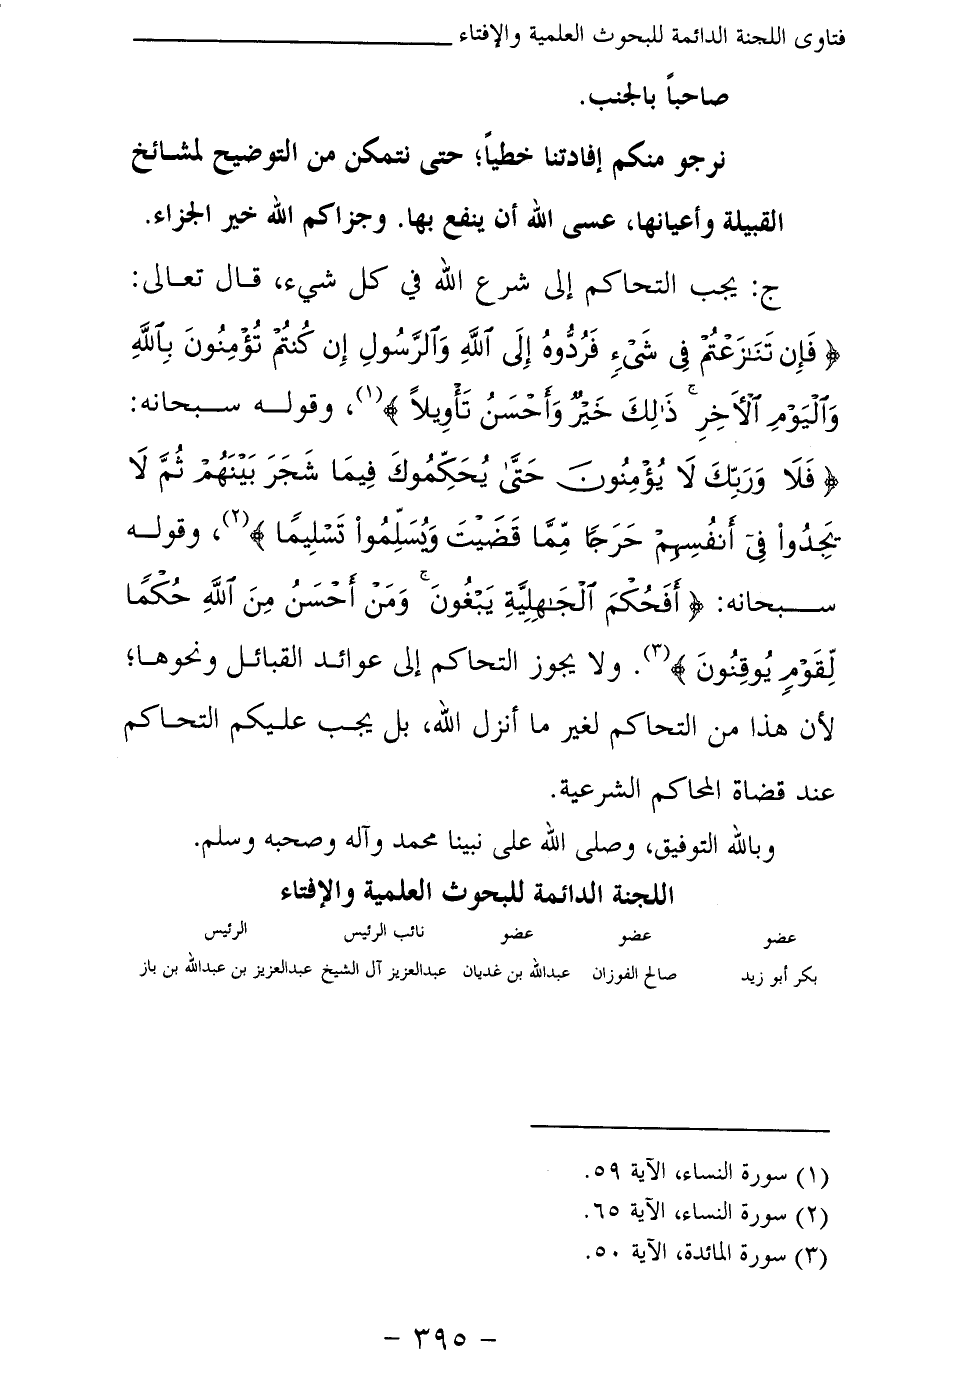 فتاوى اللجنة الدائمة للبحوث العلمية والإفتاء
صاحباً بالجنب.
نرجو منكم إفادتنا خطياً؛ حتى نتمكن من التوضيح لمشائخ
القبيلة وأعيانها، عسى الله أن ينفع بها. وجزاكم الله خير الجزاء.
ج: يجب التحاكم إلى شرع الله في كل شيء، قال تعالى:
﴿ فَإِن تَنَٰزَعْتُمْ فِى شَىْءٍ فَرُدُّوهُ إِلَى ٱللَّهِ وَٱلرَّسُولِ إِن كُنتُمْ تُؤْمِنُونَ بِٱللَّهِ
وَٱلْيَوْمِ ٱلْأَخِرِ ۚ ذَٰلِكَ خَيْرٌ وَأَحْسَنُ تَأْوِيلاً ﴾(١)، وقوله سبحانه:
﴿ فَلَا وَرَبِّكَ لَا يُؤْمِنُونَ حَتَّىٰ يُحَكِّمُوكَ فِيمَا شَجَرَ بَيْنَهُمْ ثُمَّ لَا
يَجِدُوا۟ فِىٓ أَنفُسِهِمْ حَرَجًا مِّمَّا قَضَيْتَ وَيُسَلِّمُوا۟ تَسْلِيمًا ﴾(٢)، وقوله
سبحانه: ﴿ أَفَحُكْمَ ٱلْجَٰهِلِيَّةِ يَبْغُونَ ۚ وَمَنْ أَحْسَنُ مِنَ ٱللَّهِ حُكْمًا
لِّقَوْمٍ يُوقِنُونَ ﴾(٣). ولا يجوز التحاكم إلى عوائد القبائل ونحوها؛
لأن هذا من التحاكم لغير ما أنزل الله، بل يجب عليكم التحاكم
عند قضاة المحاكم الشرعية.
وبالله التوفيق، وصلى الله على نبينا محمد وآله وصحبه وسلم.
اللجنة الدائمة للبحوث العلمية والإفتاء
عضو عضو عضو نائب الرئيس الرئيس
بكر أبو زيد صالح الفوزان عبدالله بن غديان عبدالعزيز آل الشيخ عبدالعزيز بن عبدالله بن باز
(١) سورة النساء، الآية ٥٩.
(٢) سورة النساء، الآية ٦٥.
(٣) سورة المائدة، الآية ٥٠.
- ٣٩٥ -